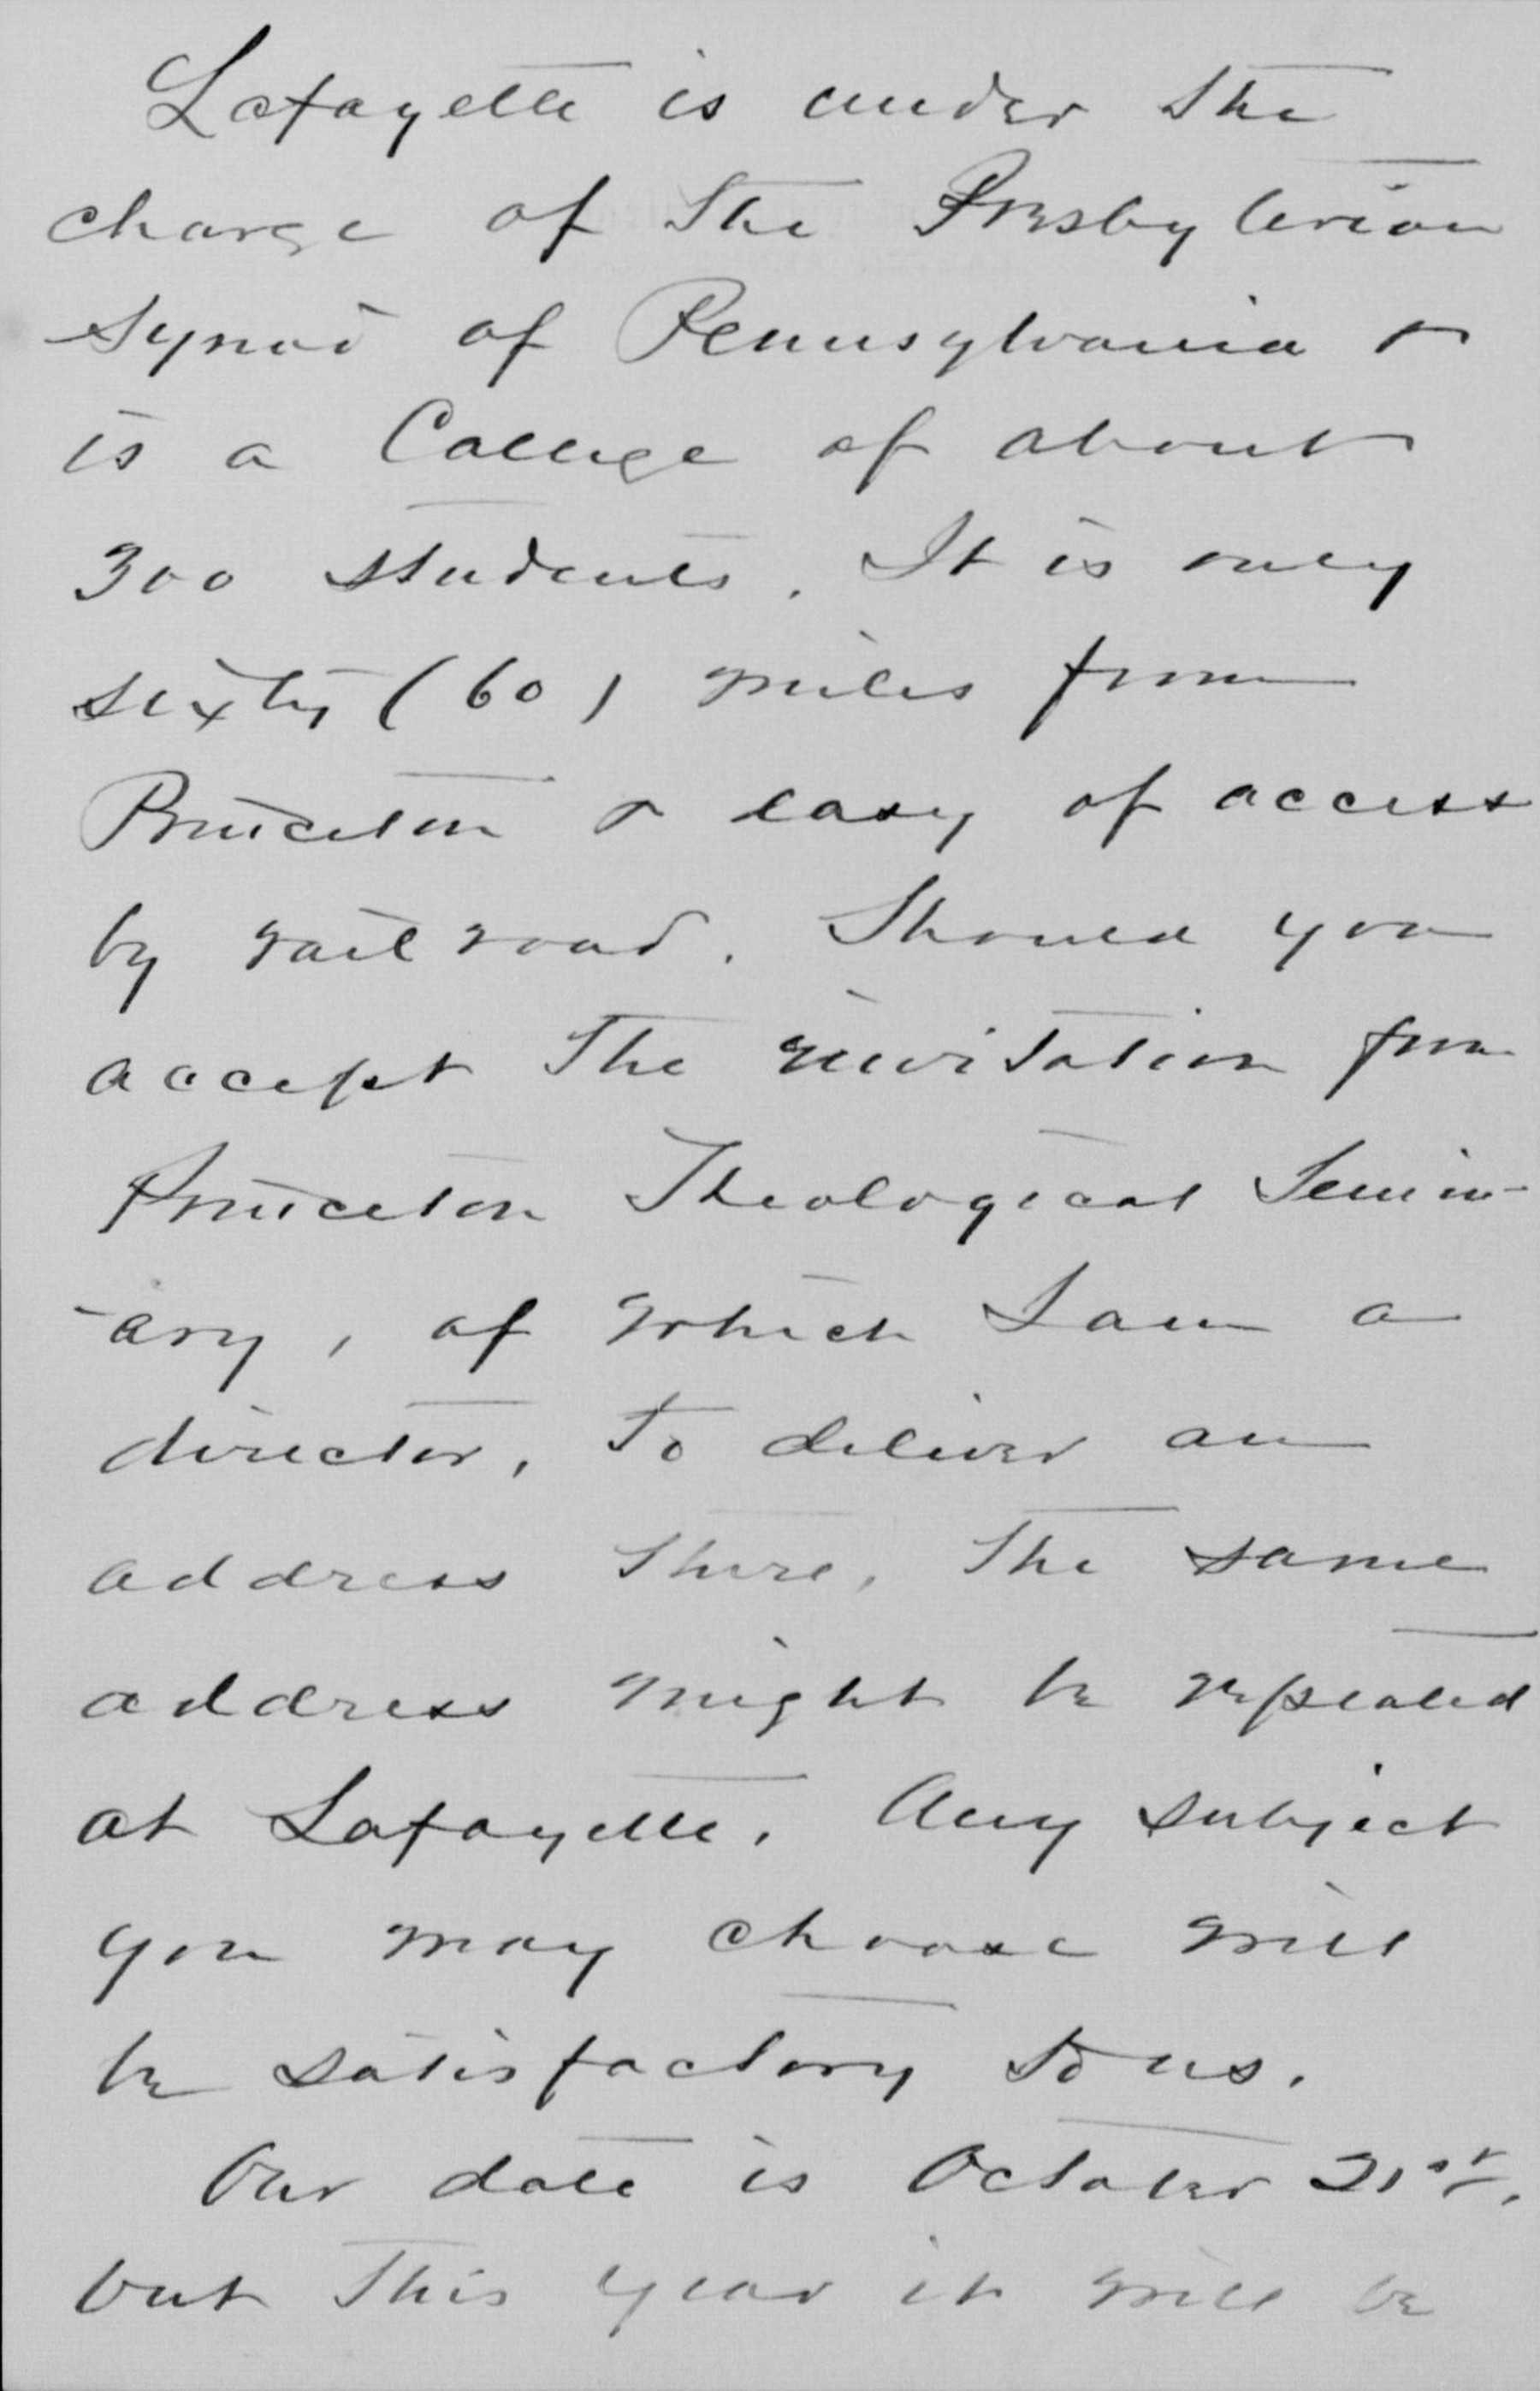 Lafayette is under the
charge of the Presbyterian
Synod of Pennsylvania &
is a College of about
300 students. It is only
sixty (60) miles from
Princeton & easy of access
by rail road. Should you
accept the invitation from
Princeton Theological Semin-
-ary, of which I am a
director, to deliver an
address there, the same
address might be repeated
at Lafayette. Any subject
you may choose will
be satisfactory to us.
Our date is October 21st,
but this year it will be